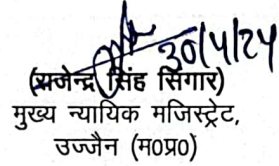 30/4/24
(राजेन्द्र सिंह सिंगार)
मुख्य न्यायिक मजिस्ट्रेट,
उज्जैन (म०प्र०)